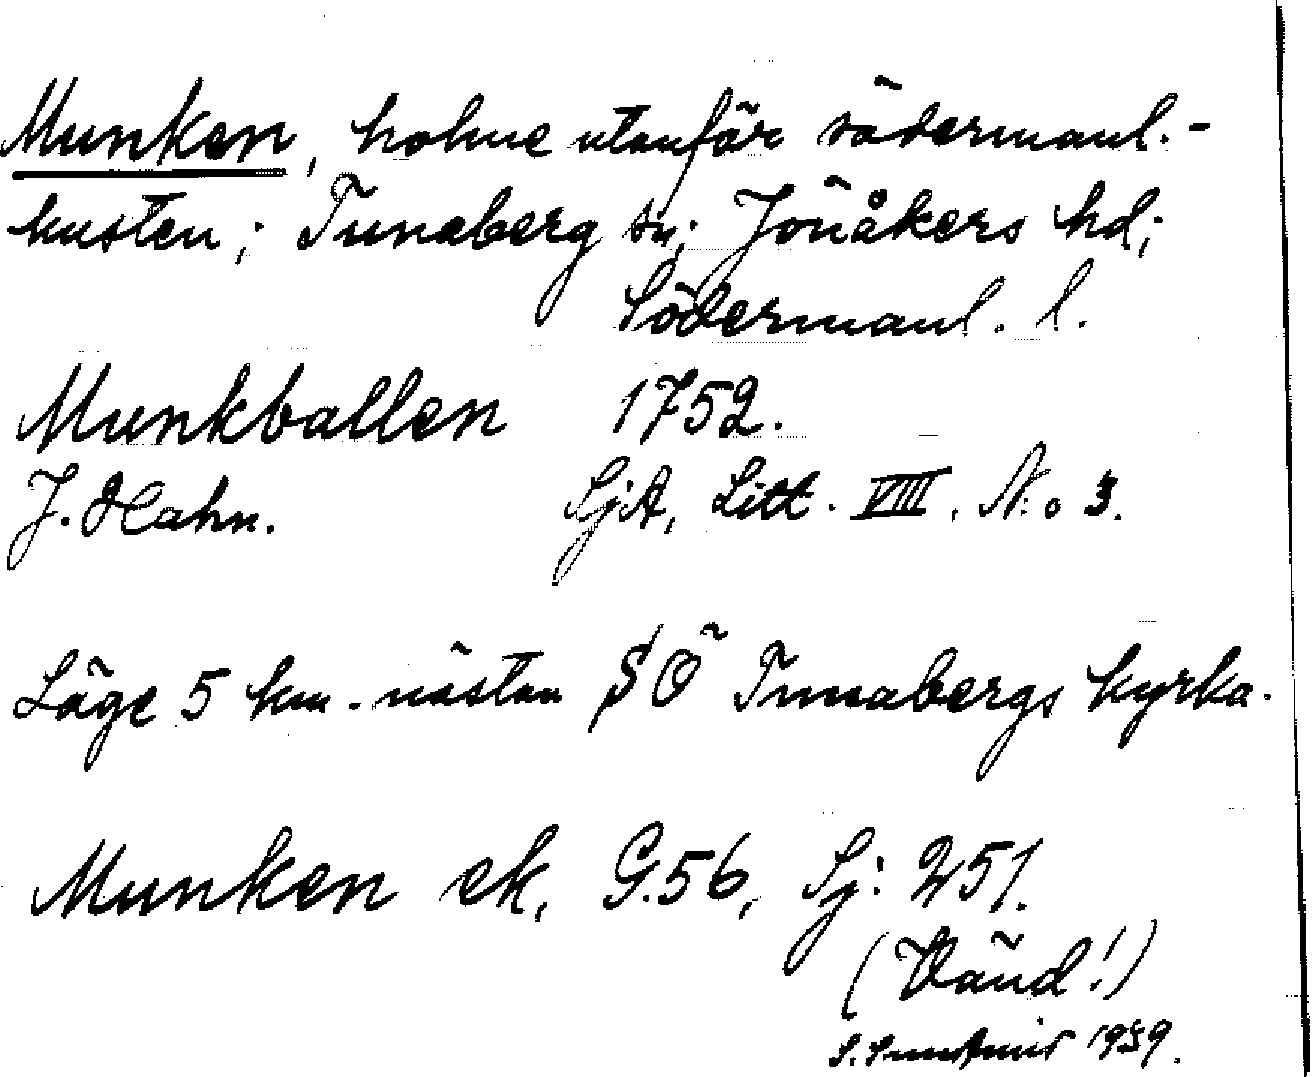 Munken, holme utanför södermanl.-
kusten; Tunaberg sn; Jönåkers hd;
Södermanl. l.
Munkballen 1752.
J. Hahn. SjA, Litt. VIII. N:o 3.
Läge 5 km. nästan SÖ Tunabergs kyrka.
Munken ek, G.56, Sj: 251.
(Vänd!)
S. 1939.